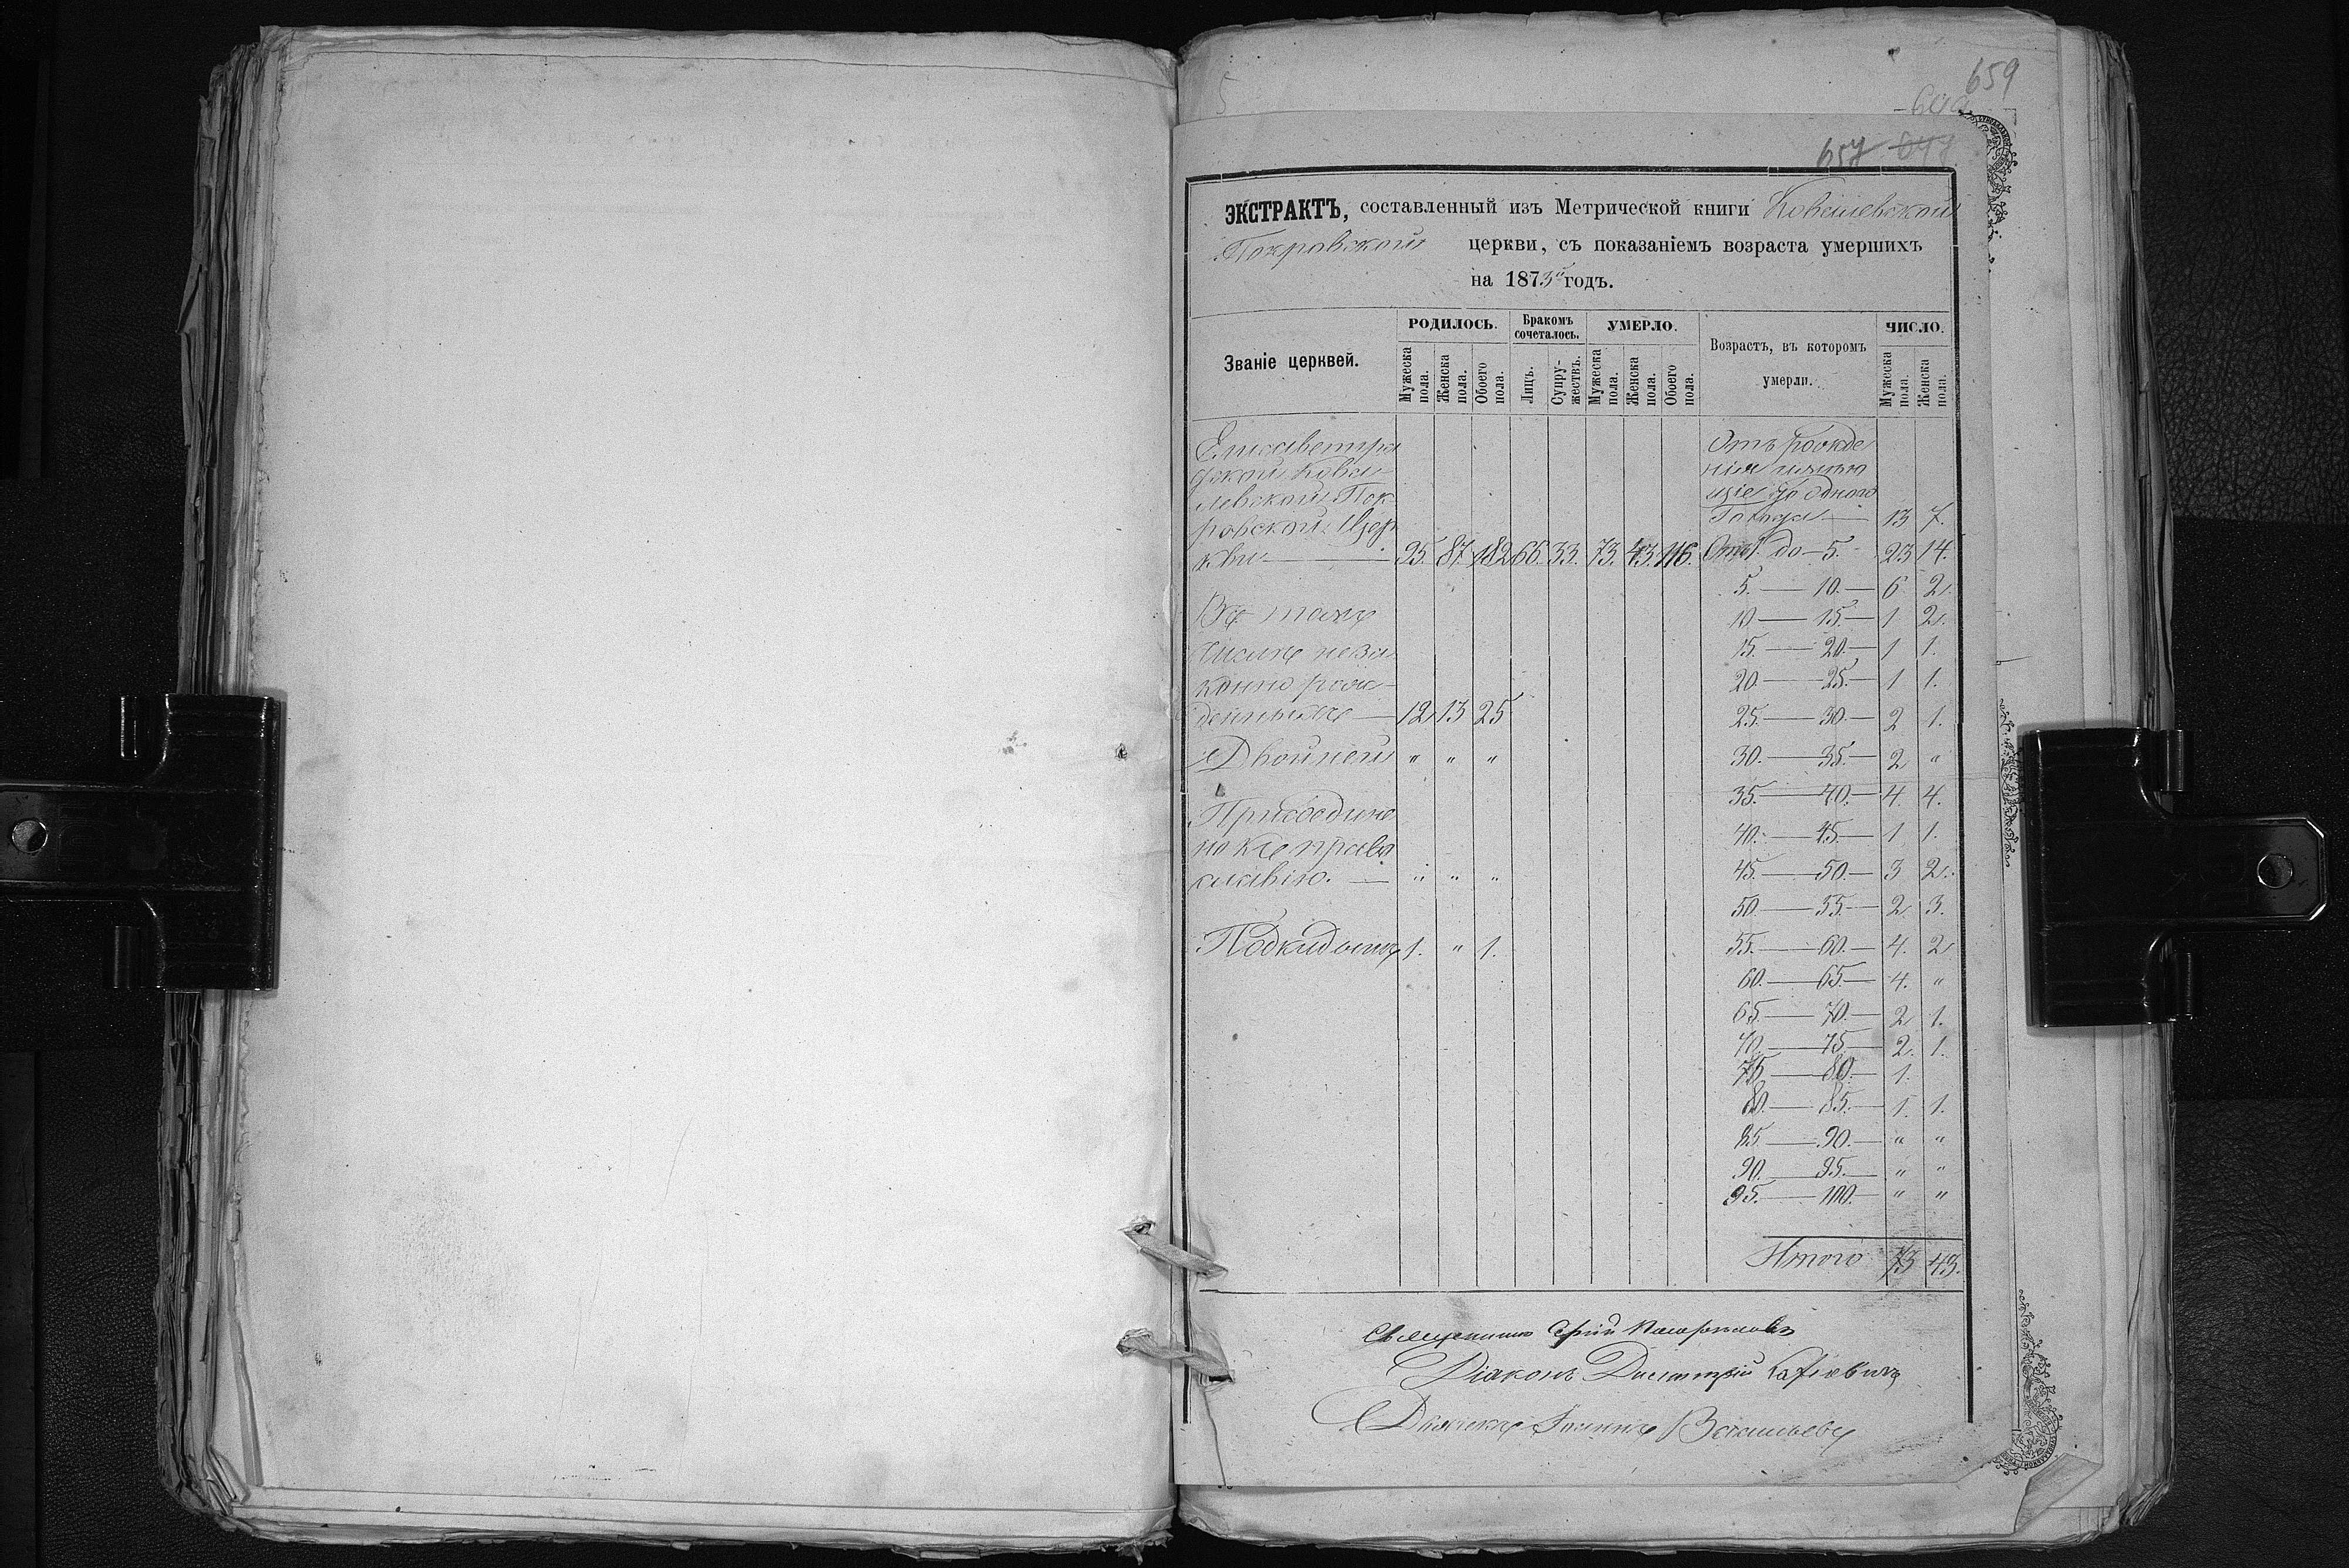 5
659
657 647
ЭКСТРАКТЪ, составленный изъ Метрической книги Ковалевской
Покровской церкви, съ показаніемъ возраста умершихъ
на 1873й годъ.
Званіе церквей.
РОДИЛОСЬ.
Мужеска пола.
Женска пола.
Обоего пола.
Бракомъ сочеталось.
Лицъ.
Супружествъ.
УМЕРЛО.
Мужеска пола.
Женска пола.
Обоего пола.
Возрастъ, въ которомъ умерли.
ЧИСЛО.
Мужеска пола.
Женска пола.
Елисаветгра
дской Кова-
левской Пок-
ровской Цер
кви — 95. 87. 182 66. 33. 73. 43. 116.
Въ томъ
числѣ неза
конно рож-
денныхъ — 12 13 25
Двойней " " "
Присоедине
но къ право
славію. — " " "
Подкидышъ 1. " 1.
Отъ рожде
нія
до одного
Года — 13 7.
Отъ 1. до — 5. 23 14.
5. — 10. — 6 2.
10 — 15. — 1 2.
15. — 20. — 1 1.
20 — 25. — 1 1.
25. — 30. — 2 1.
30. — 35. — 2 "
35. — 40. — 4. 4.
40. — 45. — 1 1.
45. — 50. — 3 2.
50. — 55. — 2. 3.
55. — 60. — 4. 2
60. — 65. — 4. "
65. — 70. — 2 1.
70. — 75. — 2. 1.
75 — 80. — 1.
80. — 85. — 1. 1.
85. — 90. — " "
90. — 95. — " "
95. — 100. — " "
Итого 73 43.
Священникъ
Діаконъ Димитрій
Дьячекъ Іоаннъ Васильевъ